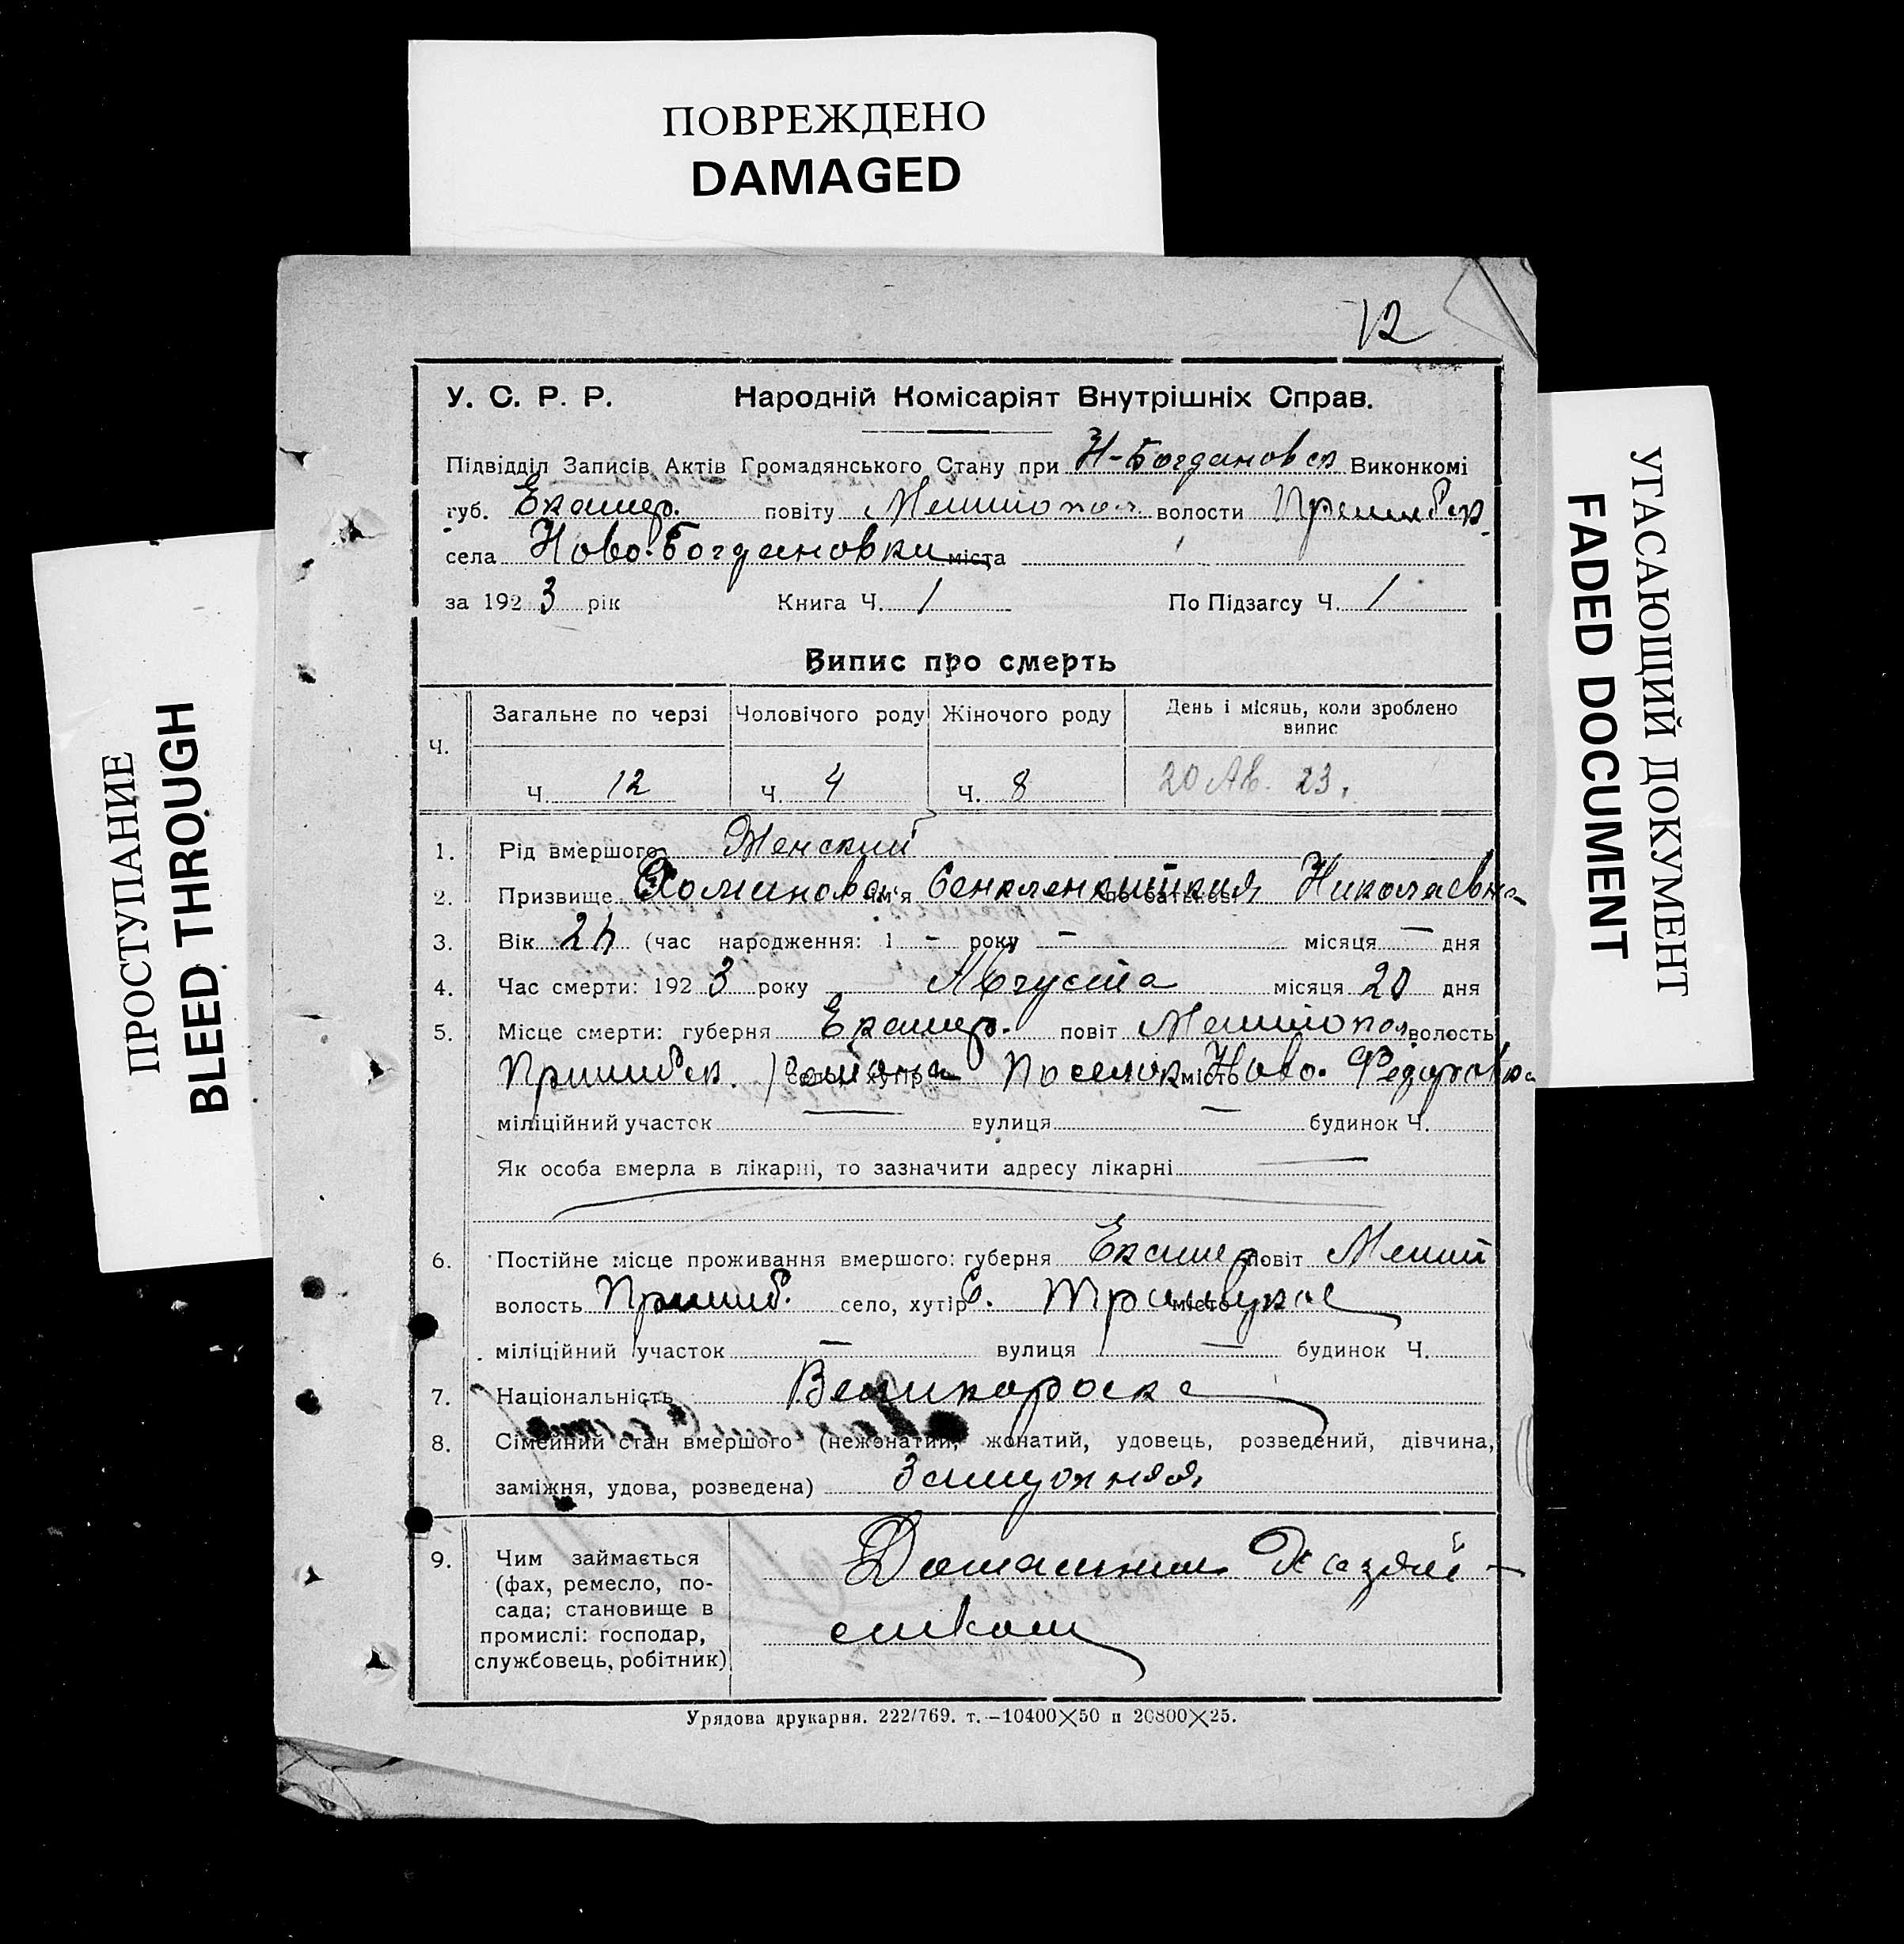 ПОВРЕЖДЕНО
DAMAGED
12
У. С. Р. Р. Народній Комісаріят Внутрішніх Справ.
Підвідділ Записів Актів Громадянського Стану при Н-Богдановск Виконкомі
губ. Екатер. повіту Мелитопол волости Пришибск.
села Ново-Богдановки міста
за 1923 рік Книга Ч. 1 По Підзагсу Ч. 1
Випис про смерть
Ч. Загальне по черзі Чоловічого роду Жіночого роду День і місяць, коли зроблено випис
Ч. 12 Ч. 4 Ч. 8 20 Ав. 23.
1. Рід вмершого Женский
2. Призвище ім'я по батькові Николаевна
3. Вік (час народження: 1 - року - місяця - дня
4. Час смерти: 1923 року Августа місяця 20 дня
5. Місце смерти: губерня Екатер. повіт Мелитопол волость
Пришибск. село, хутір Поселок місто Ново-Федоровка
міліційний участок — вулиця — будинок Ч.
Як особа вмерла в лікарні, то зазначити адресу лікарні —
6. Постійне місце проживання вмершого: губерня Екатер повіт Мелит
волость Пришиб. село, хутір С. місто
міліційний участок — вулиця — будинок Ч.
7. Національність Великороска
8. Сімейний стан вмершого (нежонатий, жонатий, удовець, розведений, дівчина,
заміжня, удова, розведена) Замужняя
9. Чим займається Домашним Хазяй-
(фах, ремесло, по-
сада; становище в ством
промислі: господар,
службовець, робітник)
Урядова друкарня. 222/769. т.—10400×50 п 20800×25.
ПРОСТУПАНИЕ
BLEED THROUGH
УГАСАЮЩИЙ ДОКУМЕНТ
FADED DOCUMENT